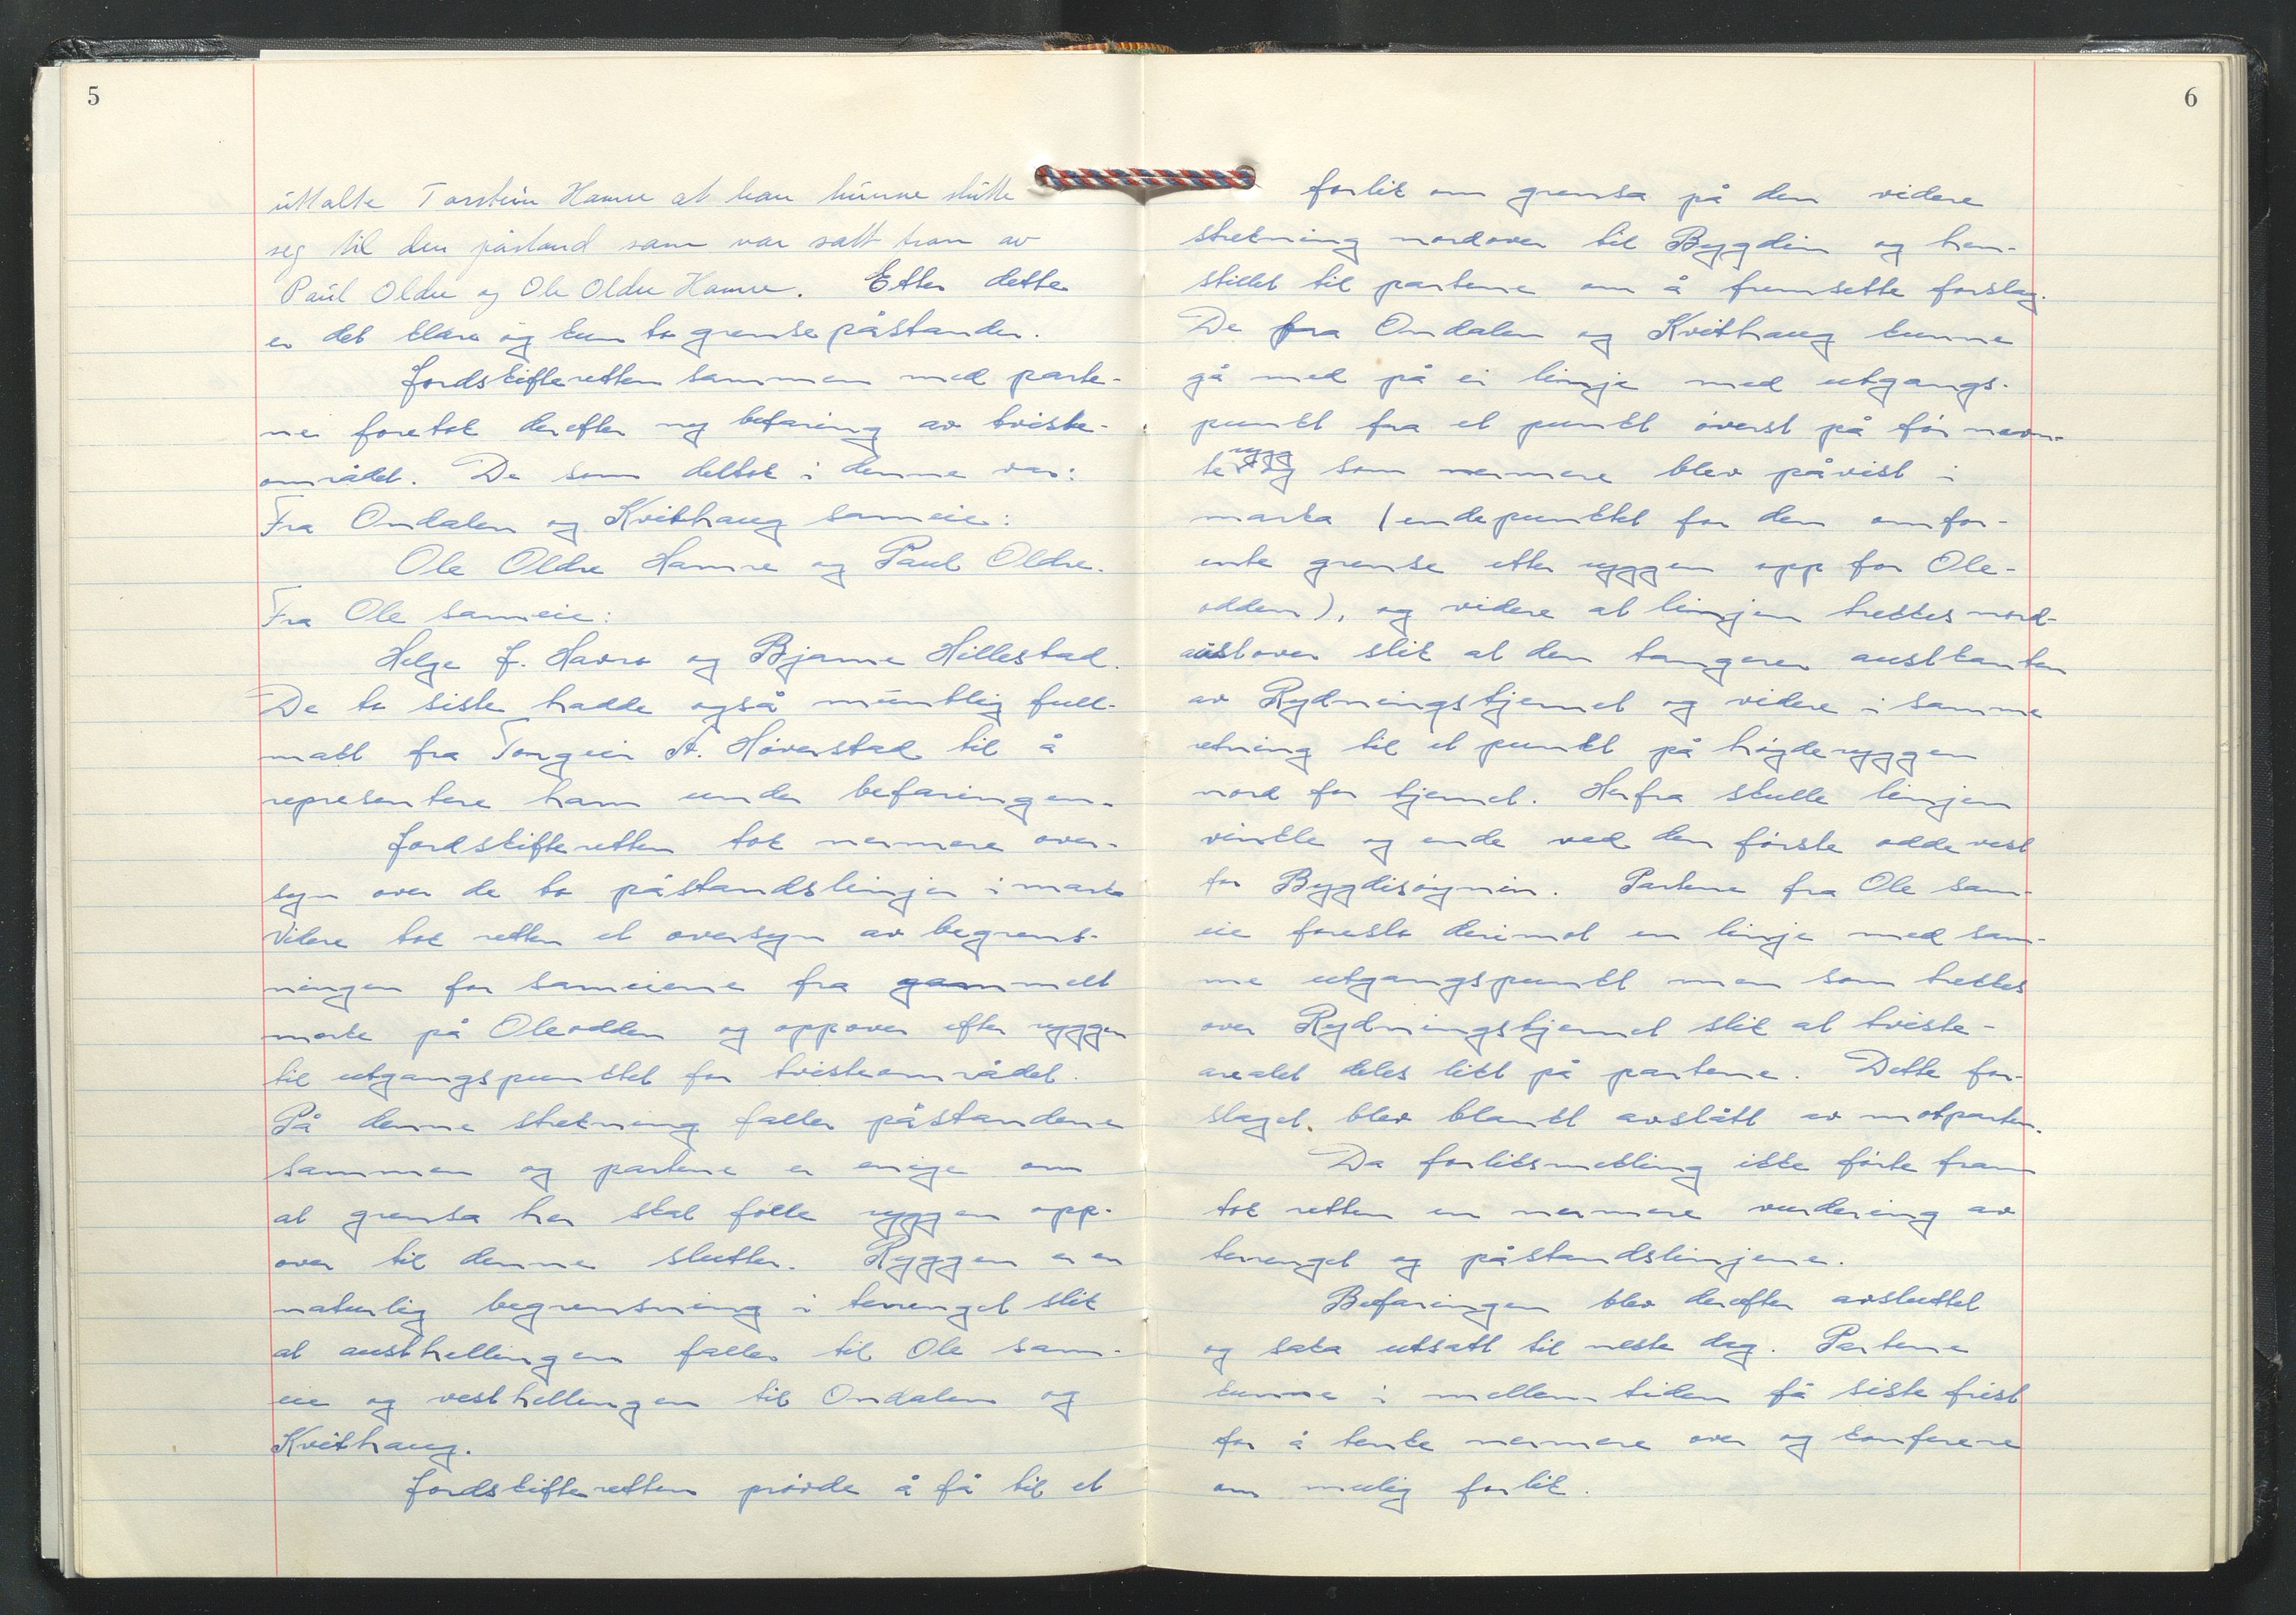 5
uttalte Torstein Hamre at han kunne slutte
seg til den påstand som var satt fram av
Paul Oldre og Ole Oldre Hamre. Etter dette
er det klare og kun to grensepåstander.
Jordskifteretten sammen med parte-
ne foretok derefter ny befaring av tviste-
området. De som deltok i denne var:
Fra Ondalen og Kvithaug sameie:
Ole Oldre Hamre og Paul Oldre.
Fra Ole sameie:
Helge J. Havro og Bjarne Hillestad.
De to siste hadde også muntlig full-
matt fra Torgeir A. Høverstad til å
representere ham under befaringen.
Jordskifteretten tok nermere over-
syn over de to påstandslinjer i marka
Videre tok retten et oversyn av begrens-
ningen for sameiene fra gammelt
merke på Oleodden og oppover efter ryggen
til utgangspunktet for tvisteområdet.
På denne strekning faller påstandene
sammen og partene er enige om
at grensa her skal følle ryggen opp-
over til denne slutter. Ryggen er en
naturlig begrensning i terrenget slik
at austhellingen faller til Ole sam-
eie og vesthellingen til Ondalen og
Kvithaug.
Jordskifteretten prøvde å få til et
6
forlik om grensa på den videre
strekning nordover til Bygdin og hen-
stillet til partene om å fremsette forslag.
De fra Ondalen og Kvithaug kunne
gå med på ei linje med utgangs-
punkt fra et punkt øverst på før nevn-
te rygg som nermere blev påvist i
marka (endepunktet for den omfor-
ente grense etter ryggen opp for Ole-
odden), og videre at linjen trekkes nord-
austover slik at den tangerer austkanten
av Rydningstjernet og videre i samme
retning til et punkt på høgderyggen
nord for tjernet. Herfra skulle linjen
vinkle og ende ved den første odde vest
for Bygdisøynin. Partene fra Ole sam-
eie foreslo derimot en linje med sam-
me utgangspunkt men som trekkes
over Rydningstjernet slik at tviste-
arealet deles likt på partene. Dette for-
slaget blev blankt avslått av motparten.
Da forliksmekling ikke førte fram
tok retten en nermere vurdering av
terrenget og påstandslinjene.
Befaringen blev derefter avsluttet
og saka utsatt til neste dag. Partene
kunne i mellemtiden få siste frist
for å tenke nermere over og konferere
om mulig forlik.